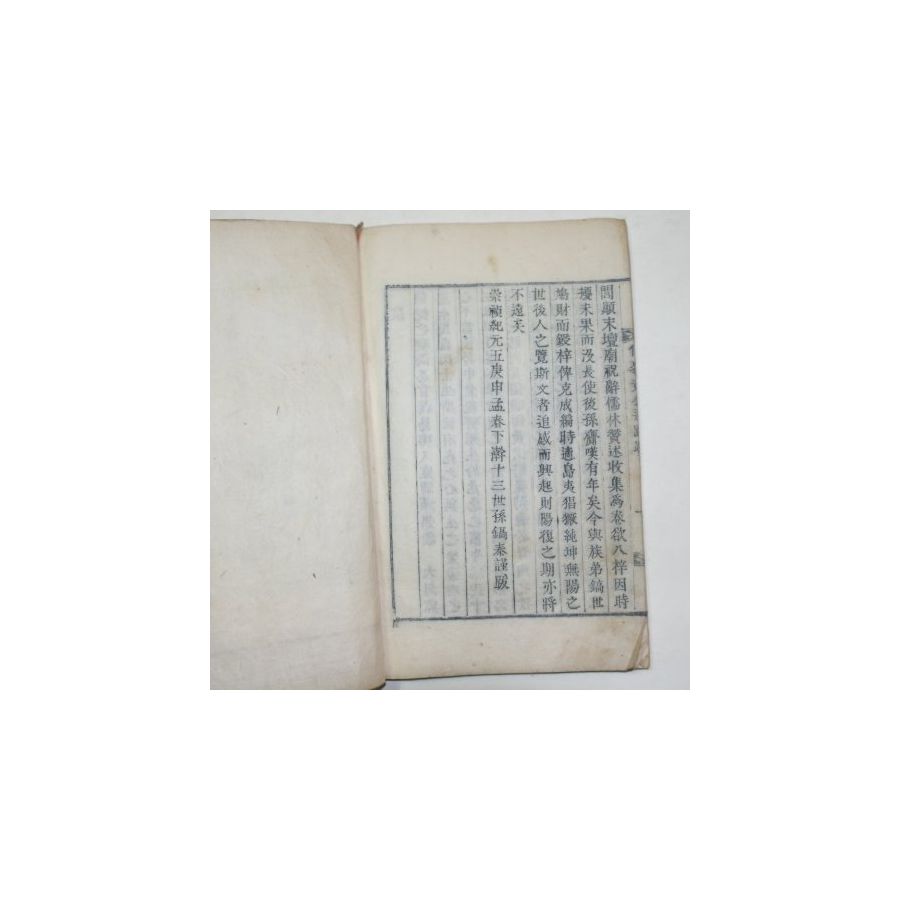 閭顚末壇廟祝辭儒林贊述收集爲卷欲入梓因時
擾未果而沒長使後孫齎嘆有年矣今與族弟鎬世
鳩財而鋟梓俾克成編時適島夷猖獗純坤無陽之
世後人之覽斯文者追感而興起則陽復之期亦將
不遠矣
崇禎紀元五庚申孟春下澣十三世孫鎬泰謹跋